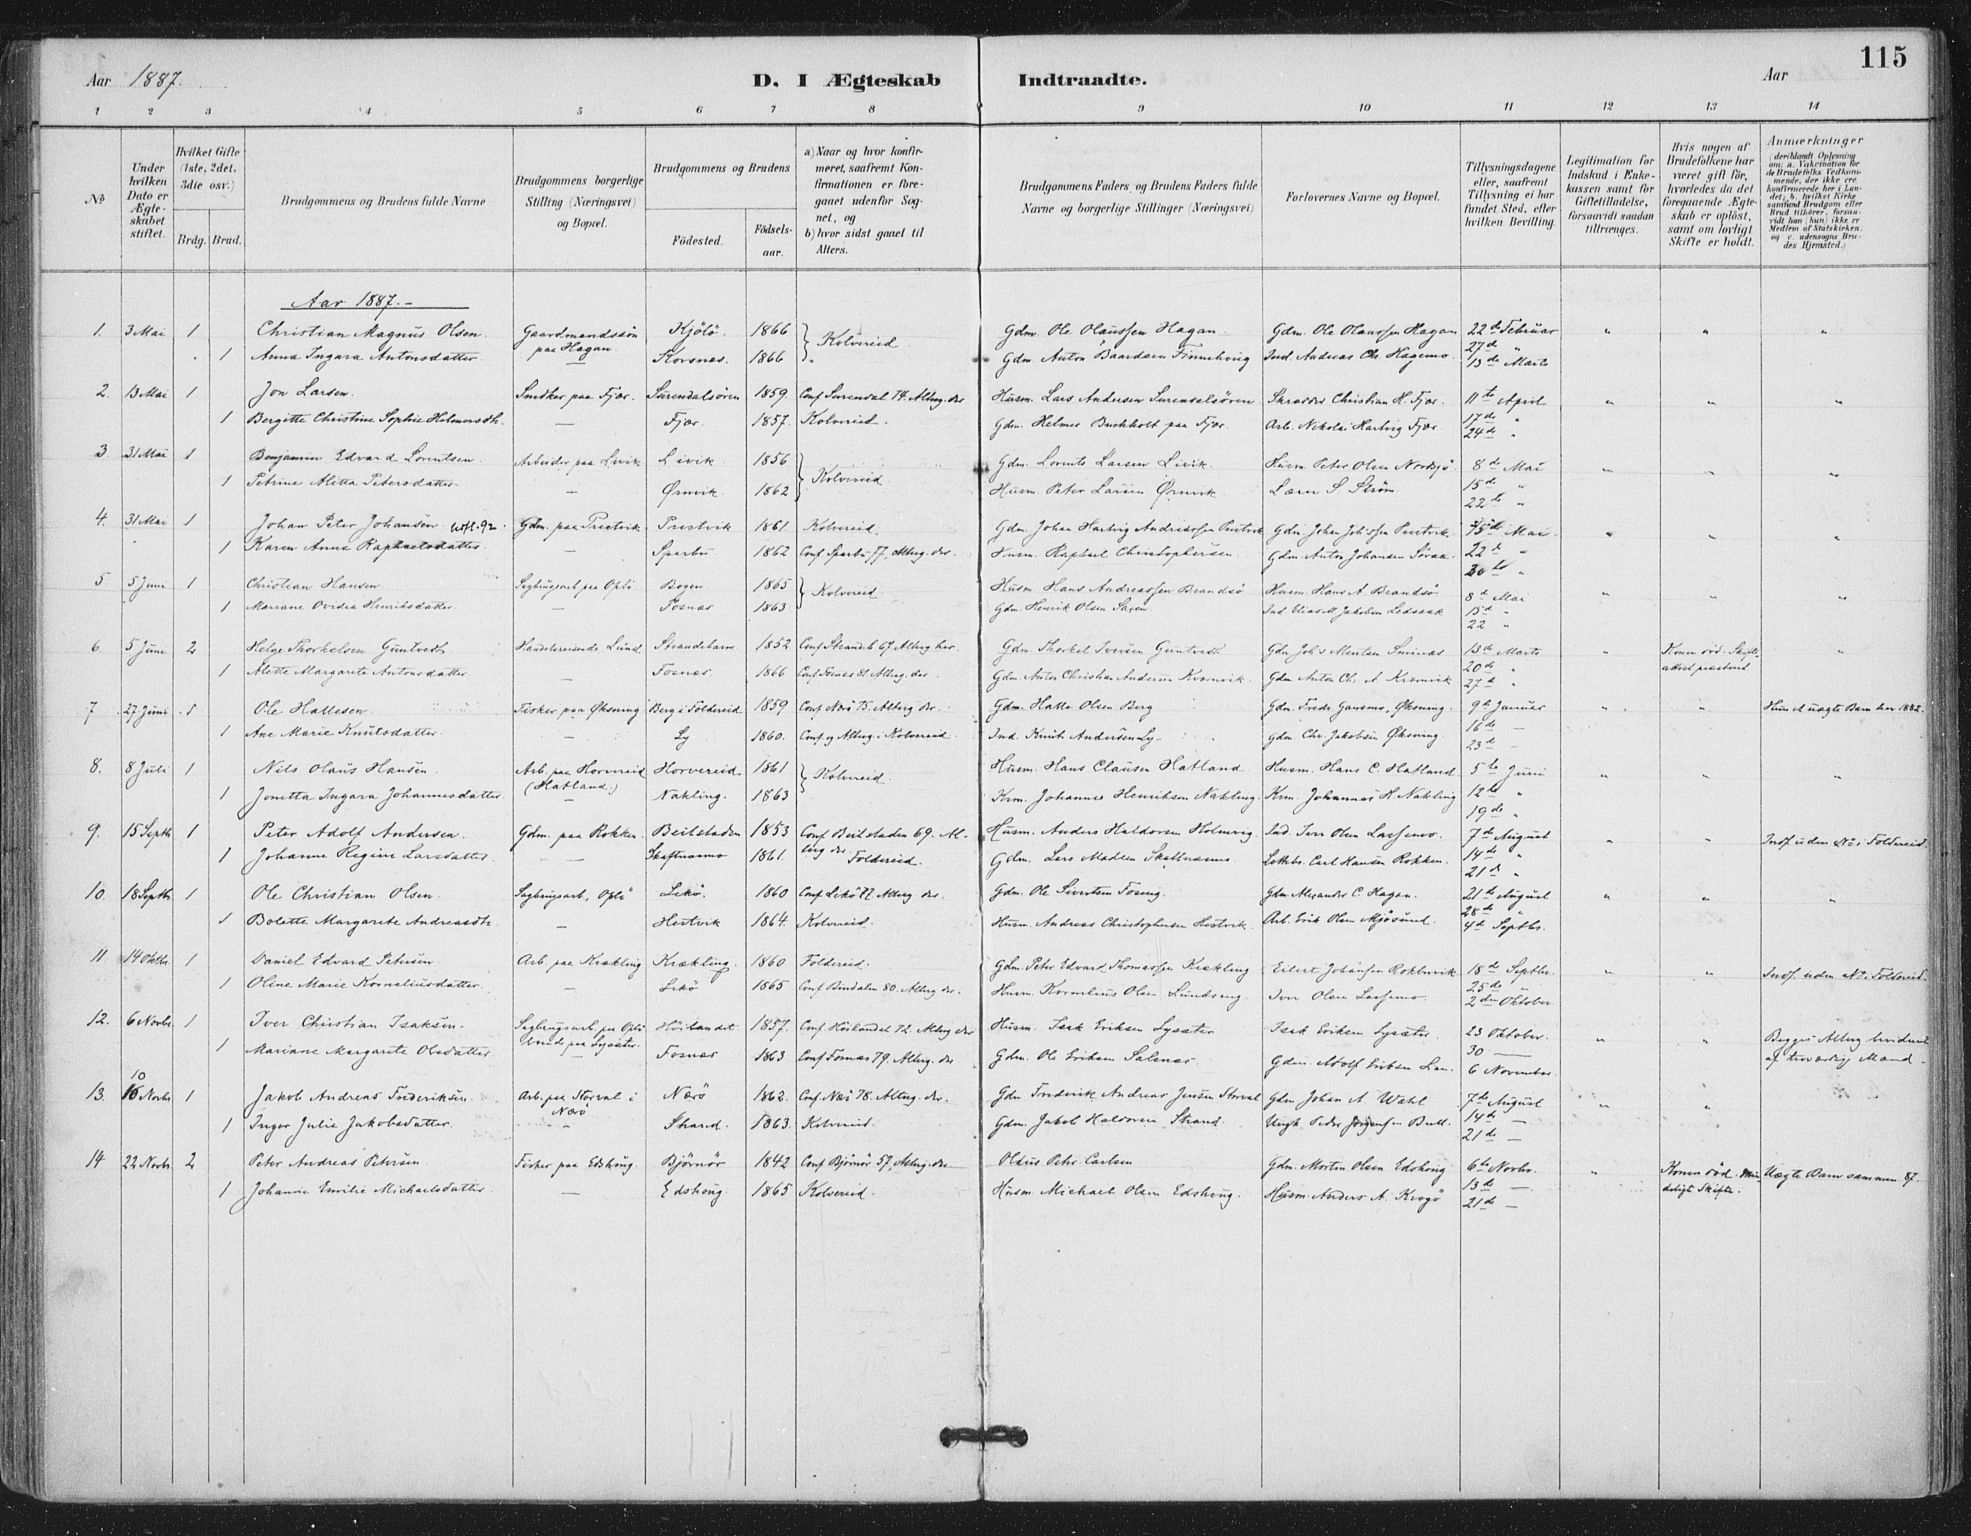 115
Aar 1887.
D. I Ægteskab Indtraadte.
Aar
1 2 3 4 5 6 7 8 9 10 11 12 13 14
No
Under hvilken Dato er Ægteskabet stiftet.
Hvilket Gifte (1ste, 2det, 3die osv.)
Brdg. Brud.
Brudgommens og Brudens fulde Navne
Brudgommens borgerlige Stilling (Næringsvei) og Bopæl.
Brudgommens og Brudens
Fødested. Fødselsaar.
a) Naar og hvor konfirmeret, saafremt Konfirmationen er foregaaet udenfor Sognet, og
b) hvor sidst gaaet til Alters.
Brudgommens Faders og Brudens Faders fulde Navne og borgerlige Stillinger (Næringsvei)
Forlovernes Navne og Bopæl.
Tillysningsdagene eller, saafremt Tillysning ei har fundet Sted, efter hvilken Bevilling.
Legitimation for Indskud i Enkekassen samt for Giftetilladelse, forsaavidt saadan tiltrænges.
Hvis nogen af Brudefolkene har været gift før, hvorledes da det foregaaende Ægteskab er opløst, samt om lovligt Skifte er holdt.
Anmerkninger (deriblandt Oplysning om: a. Vakcination for de Brudefolks Vedkommende, der ikke ere konfirmerede her i Landet; b. hvilket Kirkesamfund Brudgom eller Brud tilhører, forsaavidt han (hun) ikke er Medlem af Statskirken, og c. udensogns Brudes Hjemsted.)
Aar 1887.-
1. 3 Mai 1 Christian Magnus Olsen. Gaardmandssøn paa Hagan. Kjölö. 1866 Kolvereid Gdm. Ole Olaussen Hagan. Gdm. Ole Olaussen Hagan 22de Februar " " "
1 Anna Ingara Antonsdatter. Korsnæs. 1866 Gdm Anton Baardsen Finnehoug Ind. Andreas Chr. Hagemo. 27de "
13de Marts
2. 13 Mai 1 Jon Larsen. Snedker paa Fjær. Surendalsören 1859. Conf Surendal 74. Altrg. der Husm. Lars Andersen Surendalsören Skrædder Christian H. Fjær. 11te April " " "
1 Bergitte Christine Sophie Helmersdtr. — Fjær. 1857. Kolvereid. Gdm. Helmer Buchholt paa Fjær. Arb. Nikolai Hartvig Fjær. 17de "
24de "
3. 31 Mai 1 Benjamin Edvard Lorentsen. Arbeider paa Livik Livik 1856 Kolvereid Gdm. Lorents Larsen Livik. Husm. Peter Olsen Nordsjö. 8de Mai " " "
1 Petrine Aletta Petersdatter. — Ørnvik 1862 Husm Peter Larsen Ørnvik Lærer S Strøm 15de "
22de "
4. 31 Mai 1 Johan Peter Johansen Gdm. paa Prestvik Prestvik 1861. Kolvereid. Gdm. Johan Hartvig Andreassen Prestvik 15de Mai " " "
1 Karen Anna Raphaelsdatter — Sparbu 1862 Conf Sparbu 77, Altrg. der. Husm. Raphael Christophersen Gdm Anton Johansen 22de "
30te "
5 5 Juni 1 Christian Hansen Sagbrugsarb paa Oplö Bogen 1865 Kolvereid Husm Hans Andreassen Brandsö Husm Hans A. Brandsö 8de Mai " " "
1 Mariane Ovidea Henriksdatter. — Fosnæs 1863 Gdm. Henrik Olsen 15de "
22 "
6 5 Juni 2 Helge Thorkelsen Guntvedt Handelsreisende Lund Strandebarm 1852 Conf Strandeb 67. Altrg her. Gdm. Thorkel Iversen Guntvedt 13de Marts " Konen död. Skifteattest præsteret "
1 Alette Margarete Antonsdatter — Fosnæs. 1866 Conf Fosnæs 81. Altrg. der. Gdm Anton Christian Andersen Kvernvik. Gdm Anton Chr. A Kvernvik 20de "
27de "
7 27 Juni 1 Ole Hallesen Fisker paa Øksning Berg i Foldereid 1859 Conf Nærö 75. Altrg der. Gdm. Halle Olsen Berg Gdm. Fredr. Gansmo, Øksning. 9de Januar " " Hun A uægte Barn her 1882.
1 Ane Marie Knutsdatter. — Ly 1860. Conf og Altrg. i Kolvereid. Ind. Knut Andersen Ly. Gdm Chr. Jakobsen Øksning. 16de —
23de —
8. 8 Juli 1 Nils Olaus Hansen. Arb. paa Horvereid (Hatland.) Horvereid 1861 Kolvereid. Husm. Hans Clausen Hatland Husm. Hans C. Hatland. 5te Juni " " "
1 Jonetta Ingara Johannesdatter — Nakling. 1863 Krm. Johannes Henriksen Nakling. Krm. Johannes H. Nakling 12te "
19de "
9. 15 Septb 1 Peter Adolf Andersen. Gdm. paa Rokken. Beitstaden 1853 Conf Beitstaden 69. Altrg der. Husm. Anders Haldorsen Holmvig. 7de August " " Indf uden No i Foldereid
1 Johanne Regine Larsdatter. — Skaftnesmo 1861. Foldereid. Gdm. Lars Madsen Skaftnesmo. Carl Hansen Rokken. 14de "
21de "
10. 18 Septb 1 Ole Christian Olsen. Sagbrugsarb, Oplö Lekö. 1860 Conf Lekö 77 Altrg der. Gdm. Ole Sivertsen Gdm. Alexander C Hagen. 21de August " " "
1 Bolette Margarete Andreasdtr. — Hestvik 1864. Kolvereid. Husm. Andreas Christophersen Hestvik. Arb. Erik Olsen Mjösund. 28de "
4de Septbr.
11 14 Oktbr 1 Daniel Edvard Petersen Arb. paa Krækling Krækling 1860 Foldereid. Gdm. Peter Edvard Thomassen Krækling Eilert Johansen 18de Septbr. " " Indf. uden No i Foldereid.
1 Oline Marie Korneliusdatter. — Lekö 1865 Conf Bindalen 80. Altrg der. Husm. Kornelius Olsen Lundseng. Iver Olsen 25de "
2den Oktober
12. 6 Novbr 1 Iver Christian Isaksen. Sagbrugsarb. paa Oplö boende paa Lysæter. 1857. Altrg der Husm. Isak Eriksen Lysæter Isak Eriksen Lysæter. 23 Oktober. " " Begges Altrg bevidnet af troværdig Mand.
1 Mariane Margarite Olsdatter. Fosnæs 1863 Conf Fosnæs 79. Altrg. der Gdm. Ole Eriksen Salenæs. Gdm. Adolf Eriksen 30 —
6 November.
13. 10 16 Novbr 1 Jakob Andreas Frederiksen. Arb. paa Storval i Nærö Nærö 1862. Conf. Nærö 78. Altrg. der. Gdm Frederik Andreas Jensen Storval Gdm. Johan A Wahl 7de August " "
1 Inger Julie Jakobsdatter. — Strand. 1863. Kolvereid. Gdm. Jakob Haldorsen Strand. Ungk. Peder Jørgensen 14de —
21de —
14 22 Novbr 2 Peter Andreas Petersen. Fisker paa Edshoug. Bjørnør 1842 Conf Bjørnør 57, Altrg. der Olaus Petr. Carlsen Gdm. Morten Olsen Edshoug 6te Novbr. " Konen död. Mundtligt Skifte. Uægte Barn sammen 87.
1 Johanne Emilie Michaelsdatter. — Edshoug. 1865 Kolvereid. Husm. Michael Olsen Edshoug. Husm. Anders A. Krogö 13de —
21de —